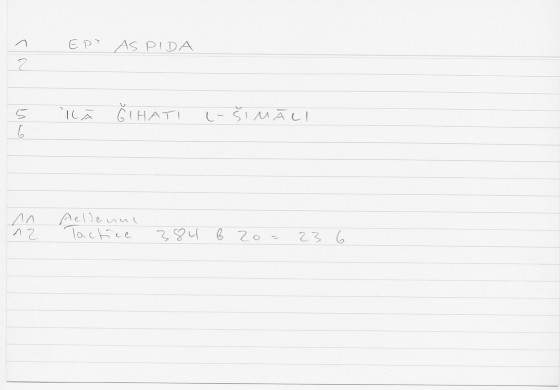 1 EP' ASPIDA
2
5 'ILĀ ǦIHATI L-ŠIMĀLI
6
11 Aelianus
12 Tactica 384 B 20 = 23 6